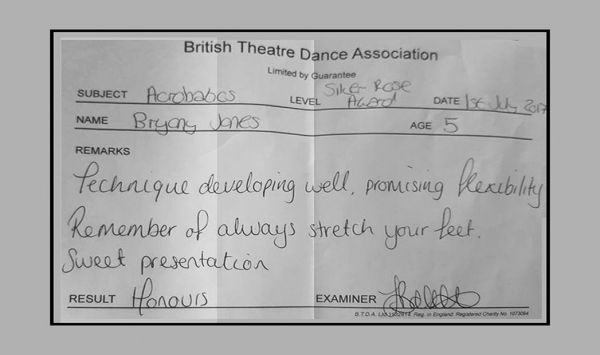 British Theatre Dance Association
Limited by Guarantee
SUBJECT Acrobabes LEVEL Silver Rose Award DATE 1st July 2017
NAME Bryony Jones AGE 5
REMARKS
Technique developing well, promising flexibility
Remember of always stretch your feet.
Sweet presentation
RESULT Honours EXAMINER
B.T.D.A. Ltd Reg. in England. Registered Charity No. 1073094